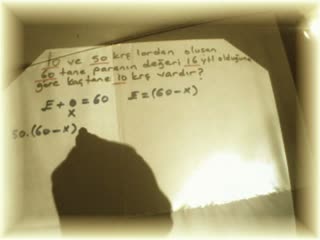 10 ve 50 krş lardan oluşan
60 tane paranın değeri 16 ytl olduğuna
göre kaç tane 10 krş vardır?
E + O = 60
E = (60 - x)
x
50.(60-x)